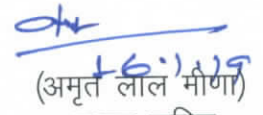 16.1.19
(अमृत लाल मीणा)